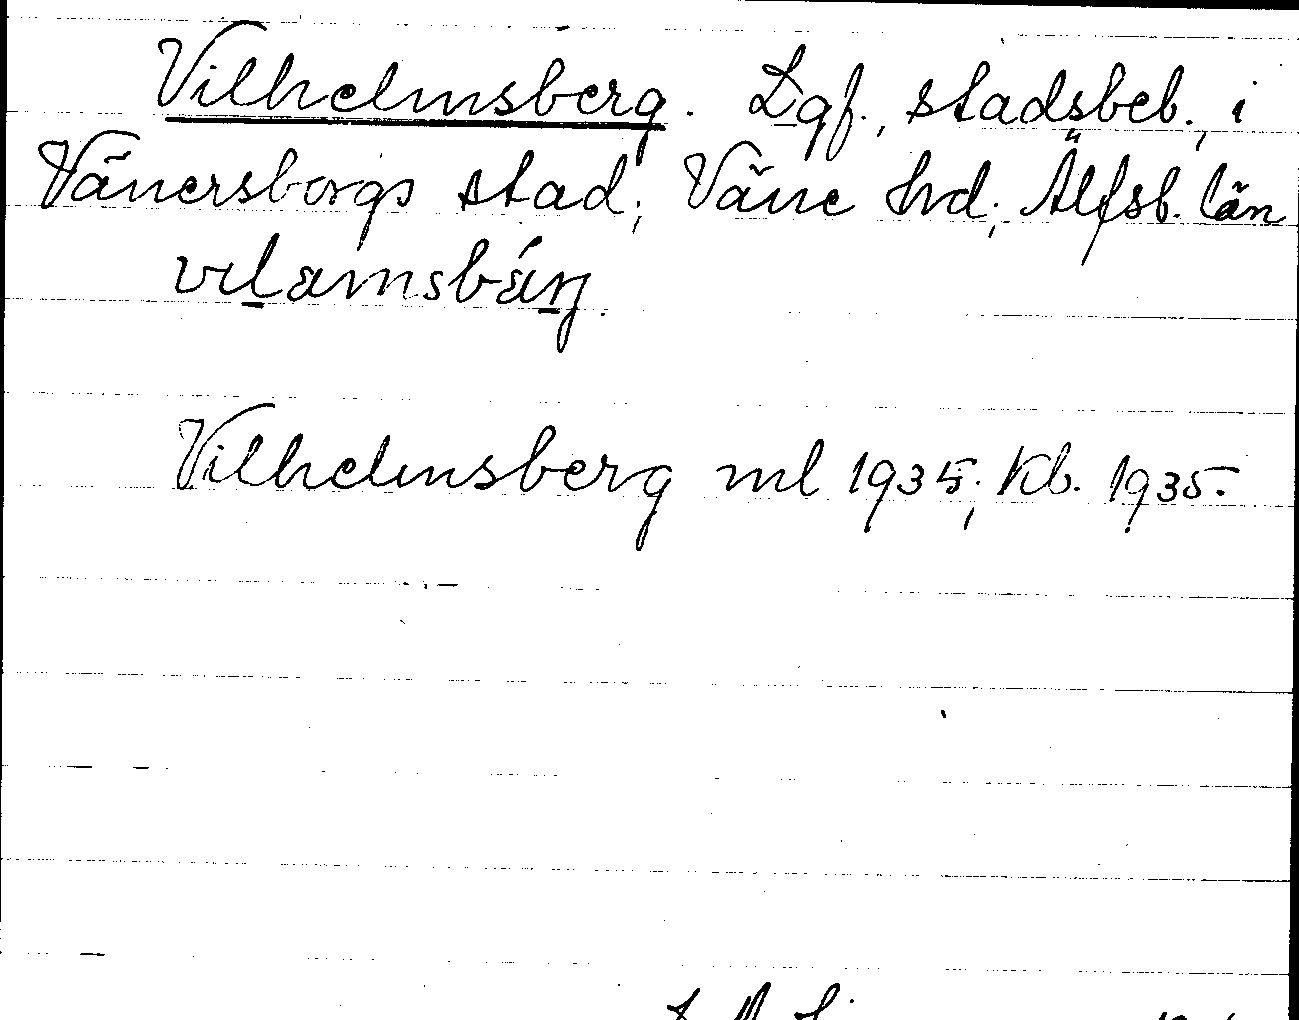 Vilhelmsberg. Lgf., stadsbeb., i
Vänersborgs stad; Väne hd; Älfsb. län
vɩlamsbárj.
Vilhelmsberg ml 1935; Kb. 1935.